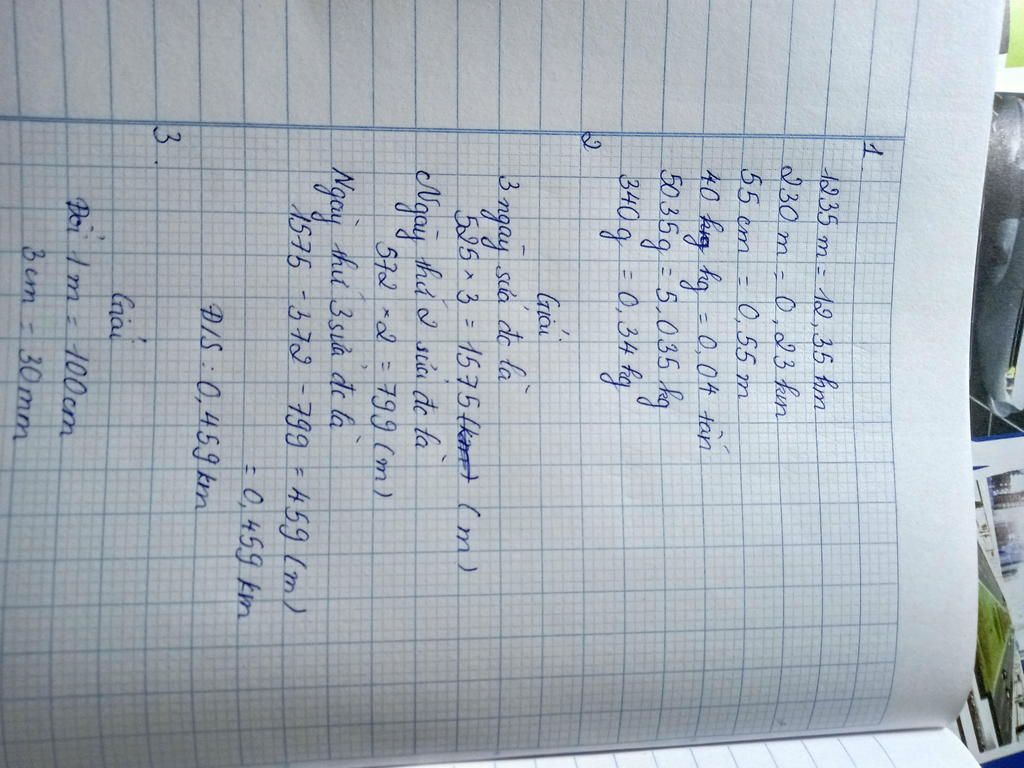 1.
1235 m = 12,35 hm
230 m = 0,23 km
55 cm = 0,55 m
40 kg = 0,04 tấn
5035g = 5,035 kg
340g = 0,34 kg
2
Giải
3 ngày sửa đc là
525 × 3 = 1575 (m)
Ngày thứ 2 sửa đc là
572 × 2 = 799 (m)
Ngày thứ 3 sửa đc là
1575 - 372 - 799 = 459 (m)
= 0,459 km
Đ/S : 0,459 km
3.
Giải
Đổi 1 m = 100cm
3 cm = 30mm